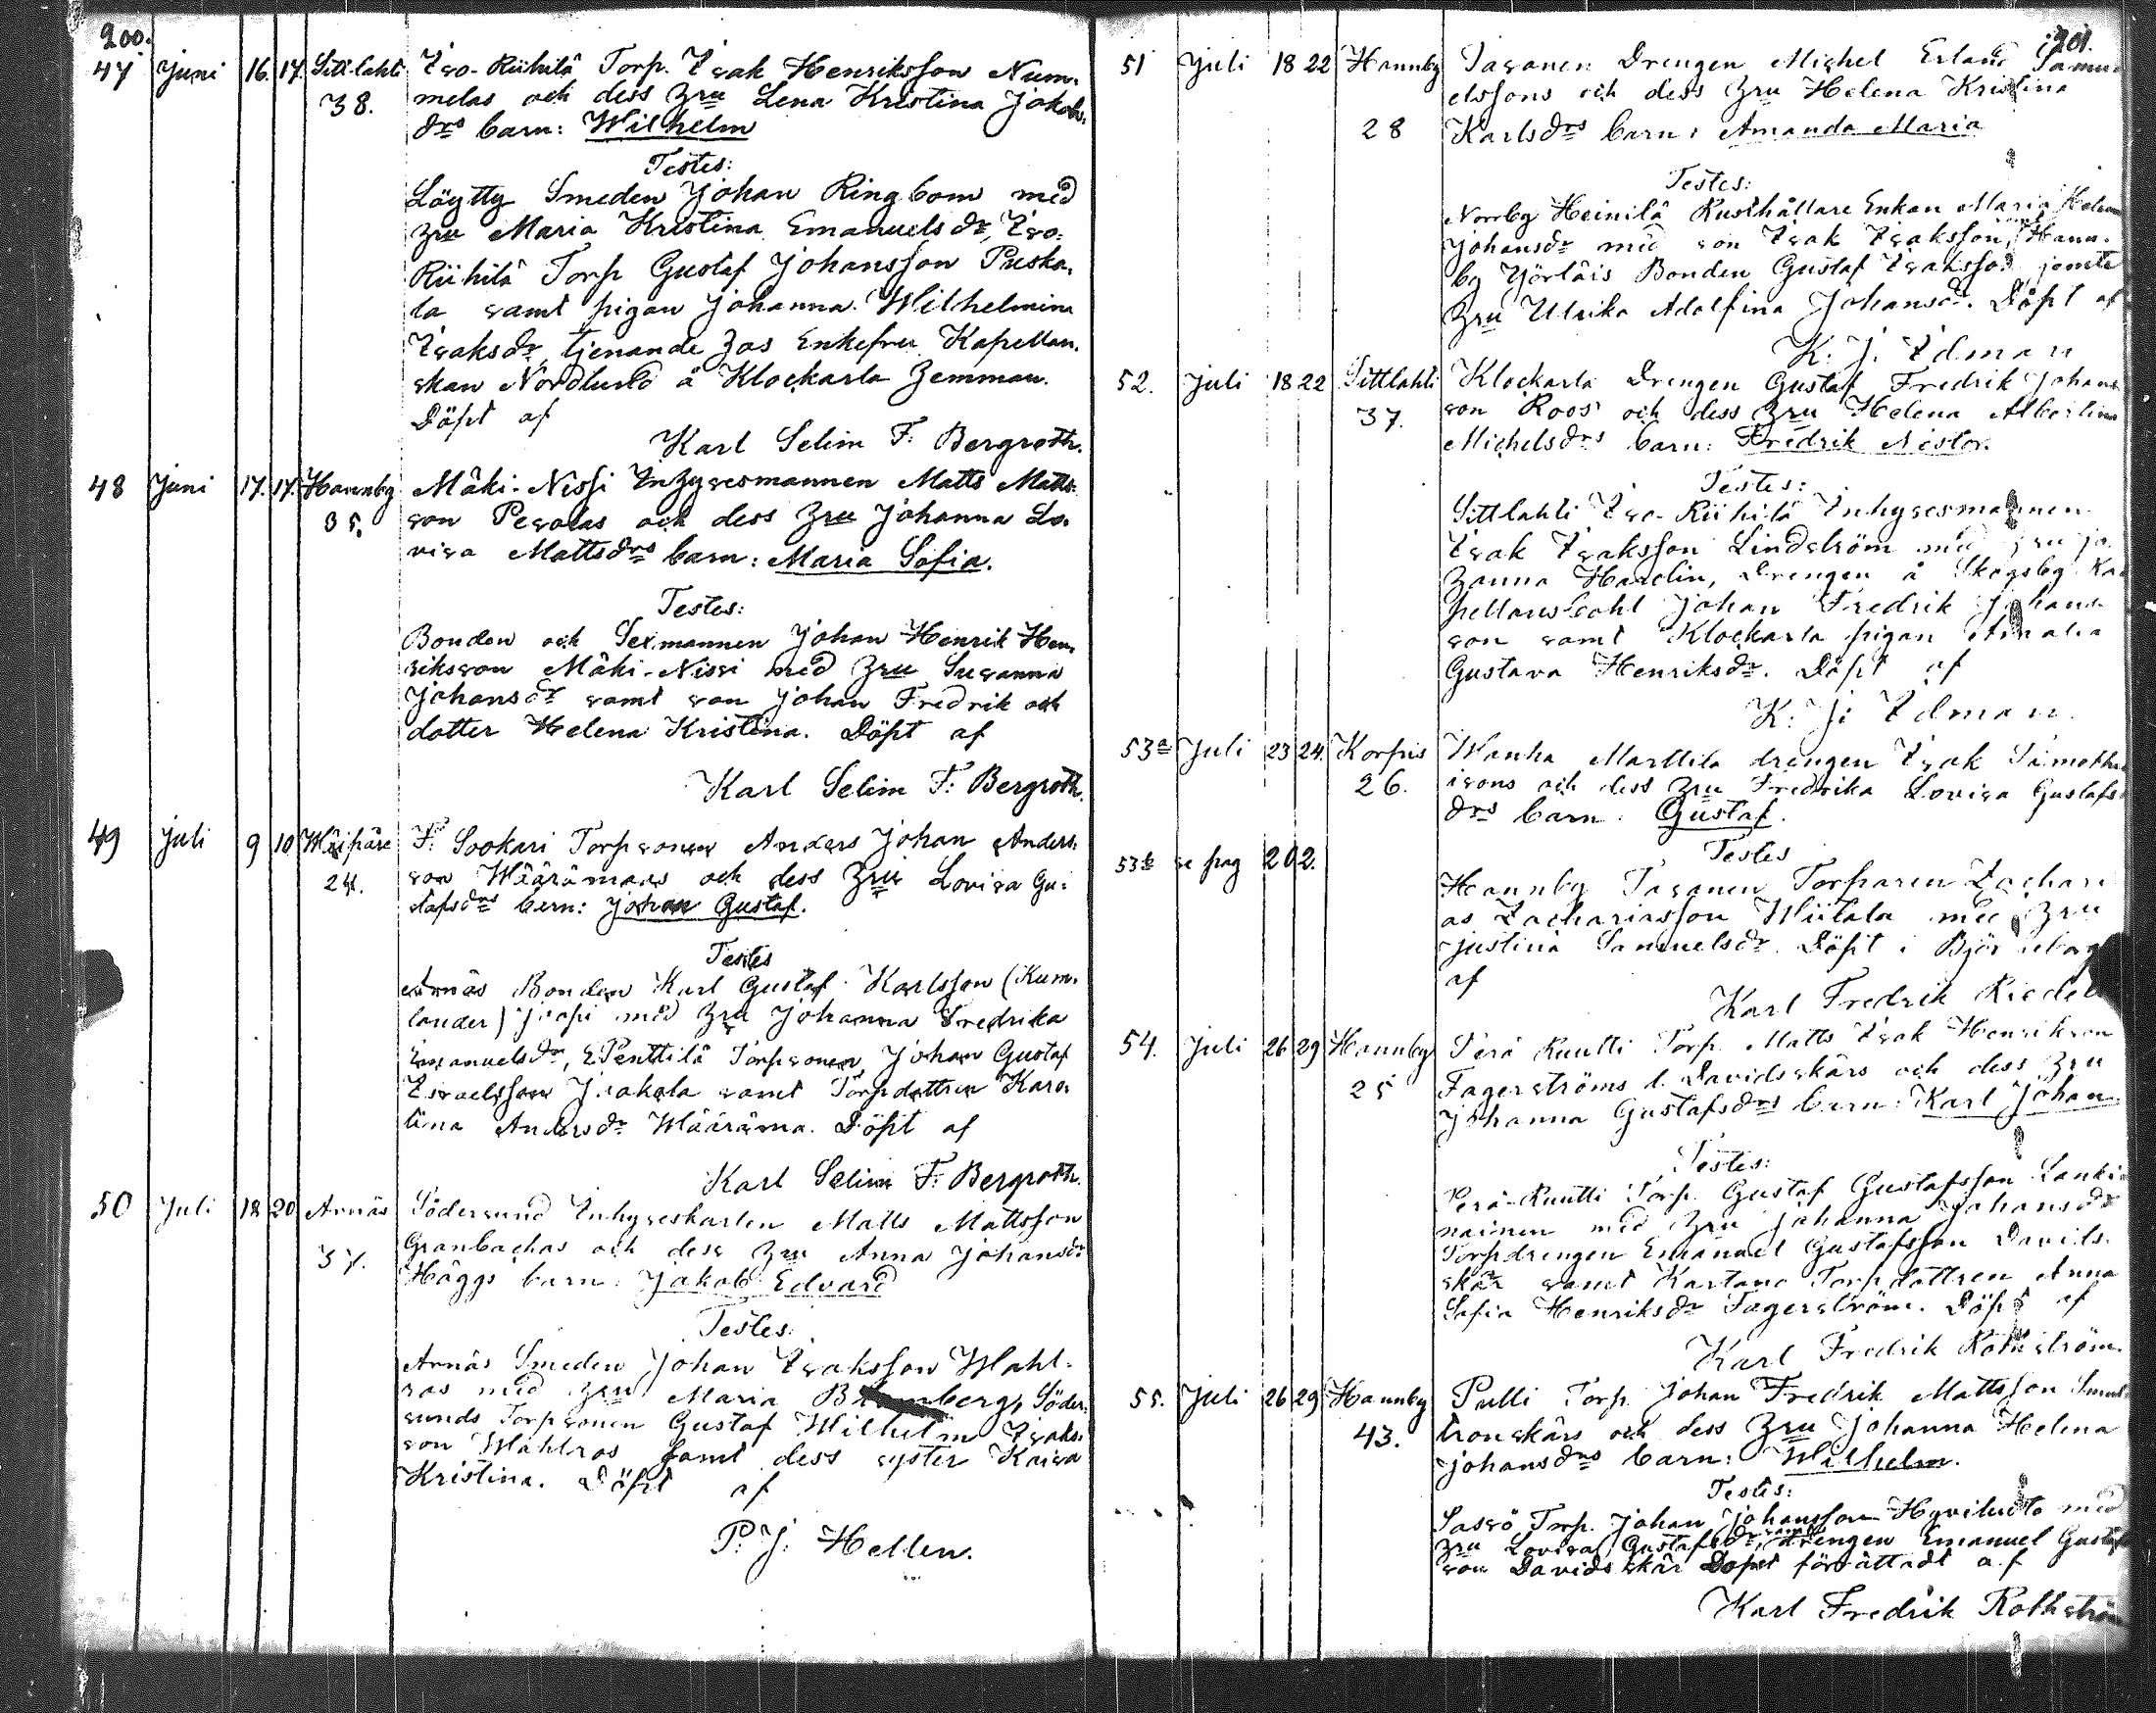 200.
47 Juni 16. 17. Sittlahti Iso-Riihilä Torp. Isak Henriksson Num-
38. melas och dess Hru Lena Kristina Jakobs-
drs barn: Wilhelm
Testes:
Löytty Smeden Johan Ringbom med
Hru Maria Kristina Emanuelsdr, Iso-
Riihilä Torp Gustaf Johansson Puska-
la samt pigan Johanna Wilhelmina
Isaksdr, tjenande hos Enkefru Kapellan-
skan Nordlund å Klockarla hemman.
Döpt af
Karl Selim F: Bergroth.
48 Juni 17. 17. Hannby Mäki-Nissi Inhysesmannen Matts Matts-
35. son Pesolas och dess Hru Johanna Lo-
visa Mattsdrs barn: Maria Sofia.
Testes:
Bonden och Sexmannen Johan Henrik Hen-
riksson Mäki-Nissi med Hru Susanna
Johansdr samt son Johan Fredrik och
dotter Helena Kristina. Döpt af
Karl Selim F: Bergroth.
49 Juli 9 10 Wäipäre F: Sookari Torpsonen Anders Johan Anders-
24. son Määrämaas och dess Hru Lovisa Gu-
stafsdrs barn: Johan Gustaf.
Testes
Arnäs Bonden Karl Gustaf Karlsson (Kum-
lander) med Hru Johanna Fredrika
Emanuelsdr, E Penttilä Torpsonen Johan Gustaf
Israelsson Jaakola samt Torpdottren Karo-
lina Andersdr Määrämaa. Döpt af
Karl Selim F: Bergroth.
50 Juli 18 20 Arnäs Södersund Inhyseskarlen Matts Mattsson
37. Granbackas och dess Hru Anna Johansdr
Häggs barn: Jakob Edvard
Testes:
Arnäs Smeden Johan Isaksson Wahl-
ros med Hru Maria Söder-
sunds Torpsonen Gustaf Wilhelm Isaks-
son Wahlros samt dess syster Kaisa
Kristina. Döpt af
P: J: Hellen.
201.
51 Juli 18 22 Hannby Tasanen Drengen Michel Erland Samu-
elssons och dess Hru Helena Kristina
28 Karlsdrs barn: Amanda Maria
Testes:
Norrby Heinilä Rusthållare Enkan Maria Helena
Johansdr med son Isak Isaksson, Hann-
by Yörläis Bonden Gustaf Isaksson jemte
Hru Ulrika Adolfina Johansdr. Döpt af
K: J: Idman
52. Juli 18 22 Sittlahti Klockarla Drengen Gustaf Fredrik Johans-
37. son Roos och dess Hru Helena Albertina
Michelsdrs barn: Fredrik Nestor.
Testes:
Sittlahti Iso-Riihilä Inhysesmannen
Isak Isaksson Lindström med Hru Jo-
hanna Hardin, Drengen å Skogsby Ka-
pellansbohl Johan Fredrik Johans-
son samt Klockarla pigan Amalia
Gustava Henriksdr. Döpt af
K: J: Idman.
53a Juli 23 24. Korpis Wanha Marttila drengen Isak Timothe-
26. isons och dess Hru Fredrika Lovisa Gustafs-
drs barn: Gustaf.
53b se pag 202.
Testes
Hannby Tasanen Torparen Zachari-
as Zachariasson Wiitala med Hru
Justina Samuelsdr. Döpt i Björneborg
af
Karl Fredrik Riedel
54. Juli 26 29 Hannby Perä Ruutti Torp. Matts Isak Henriksson
25 Fagerströms l. Davidsskärs och dess Hru
Johanna Gustafsdrs barn: Karl Johan
Testes:
Perä-Ruutti Torp. Gustaf Gustafsson Lanki-
nainen med Hru Johanna Johansdr
Torpdrengen Emanuel Gustafsson Davids-
skär samt Kartano Torpdottren Anna
Sofia Henriksdr Fagerström. Döpt af
Karl Fredrik Rothström.
55. Juli 26 29 Hannby Pulli Torp. Johan Fredrik Mattsson
43. tronskärs och dess Hru Johanna Helena
Johansdrs barn: Wilhelm.
Testes:
Sassö Torp. Johan Johansson Hyviluoto med
Hru Lovisa Gustafsdr, samt drengen Emanuel Gustaf-
son Davidsskär Dopet förrättadt af
Karl Fredrik Rothström